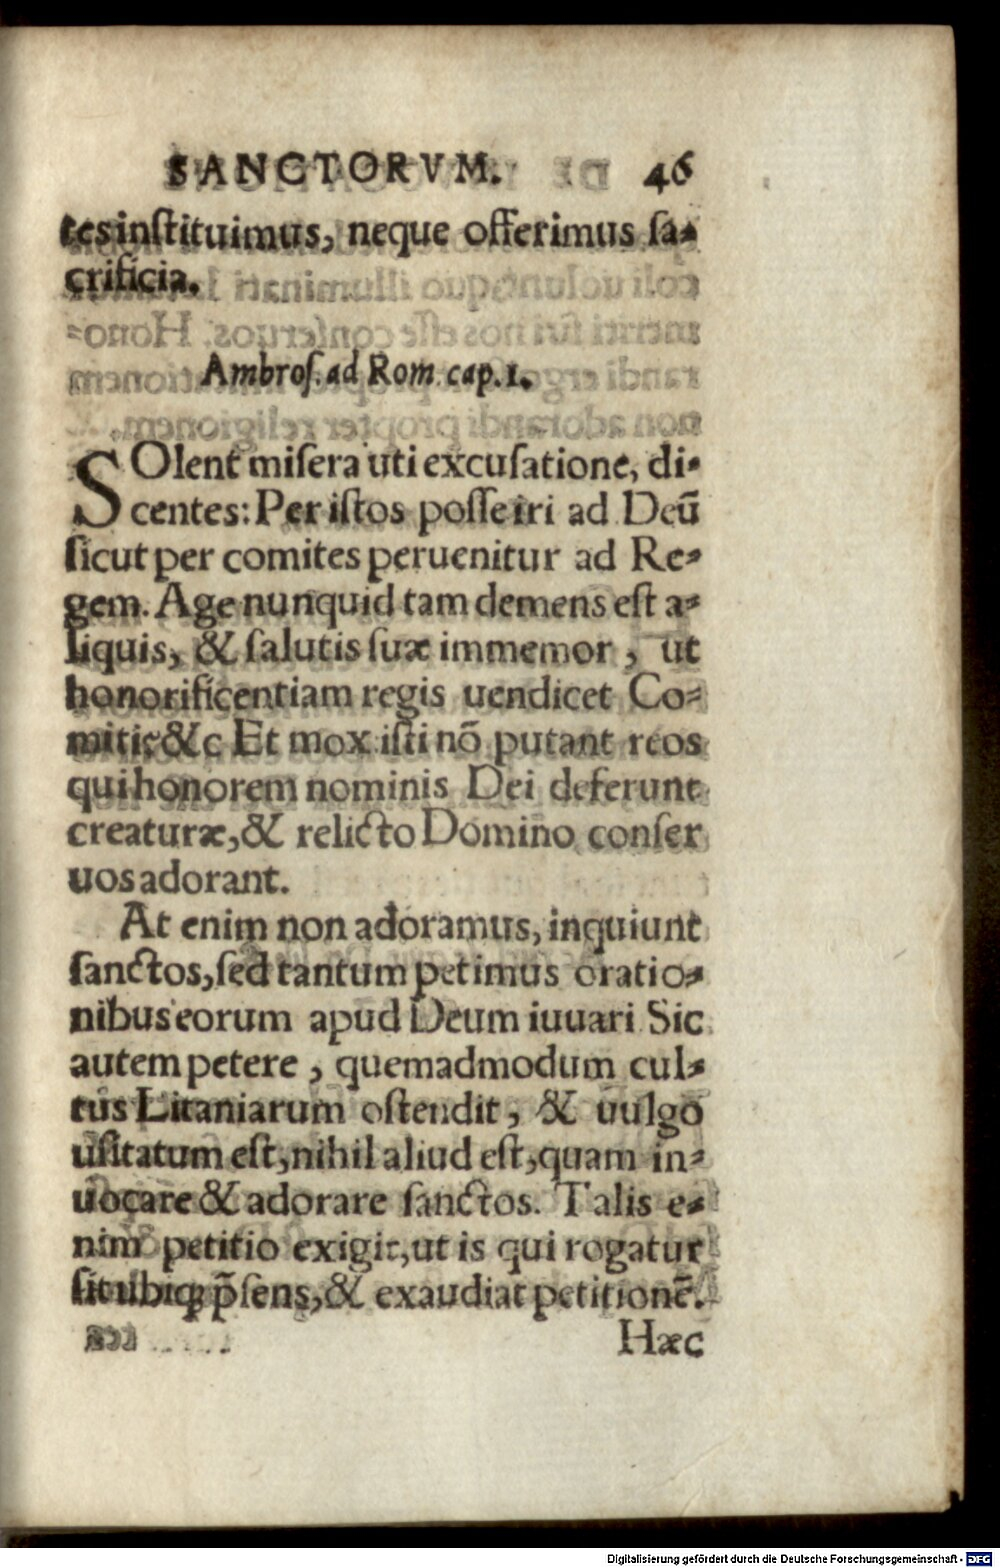 SANCTORVM. 46
tes instituimus, neque offerimus sa-
crificia.
Ambros. ad Rom. cap. 1.
SOlent misera uti excusatione, di-
centes: Per istos posse iri ad Deū
sicut per comites peruenitur ad Re-
gem. Age nunquid tam demens est a-
liquis, & salutis suæ immemor, ut
honorificentiam regis uendicet Co-
mitis &c Et mox isti nō putant reos
qui honorem nominis Dei deferunt
creaturæ, & relicto Domino conser
uos adorant.
At enim non adoramus, inquiunt
sanctos, sed tantum petimus oratio-
nibus eorum apud Deum iuuari Sic
autem petere, quemadmodum cul-
tus Litaniarum ostendit, & uulgo
usitatum est, nihil aliud est, quam in-
uocare & adorare sanctos. Talis e-
nim petitio exigit, ut is qui rogatur
sit ubiqꝫ p̄sens, & exaudiat petitionē.
Hæc
Digitalisierung gefördert durch die Deutsche Forschungsgemeinschaft - DFG